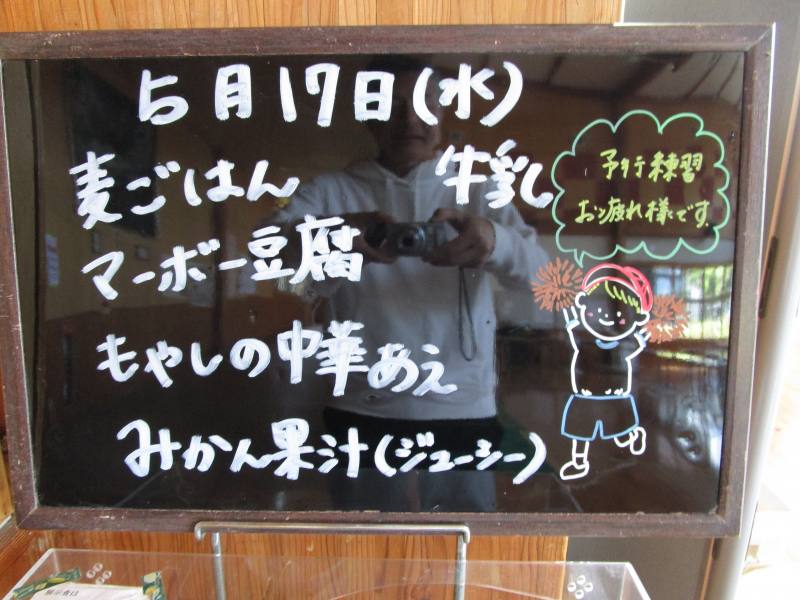 5月17日(水)
麦ごはん 牛乳
マーボー豆腐
もやしの中華あえ
みかん果汁(ジューシー)
予行練習
お疲れ様です。